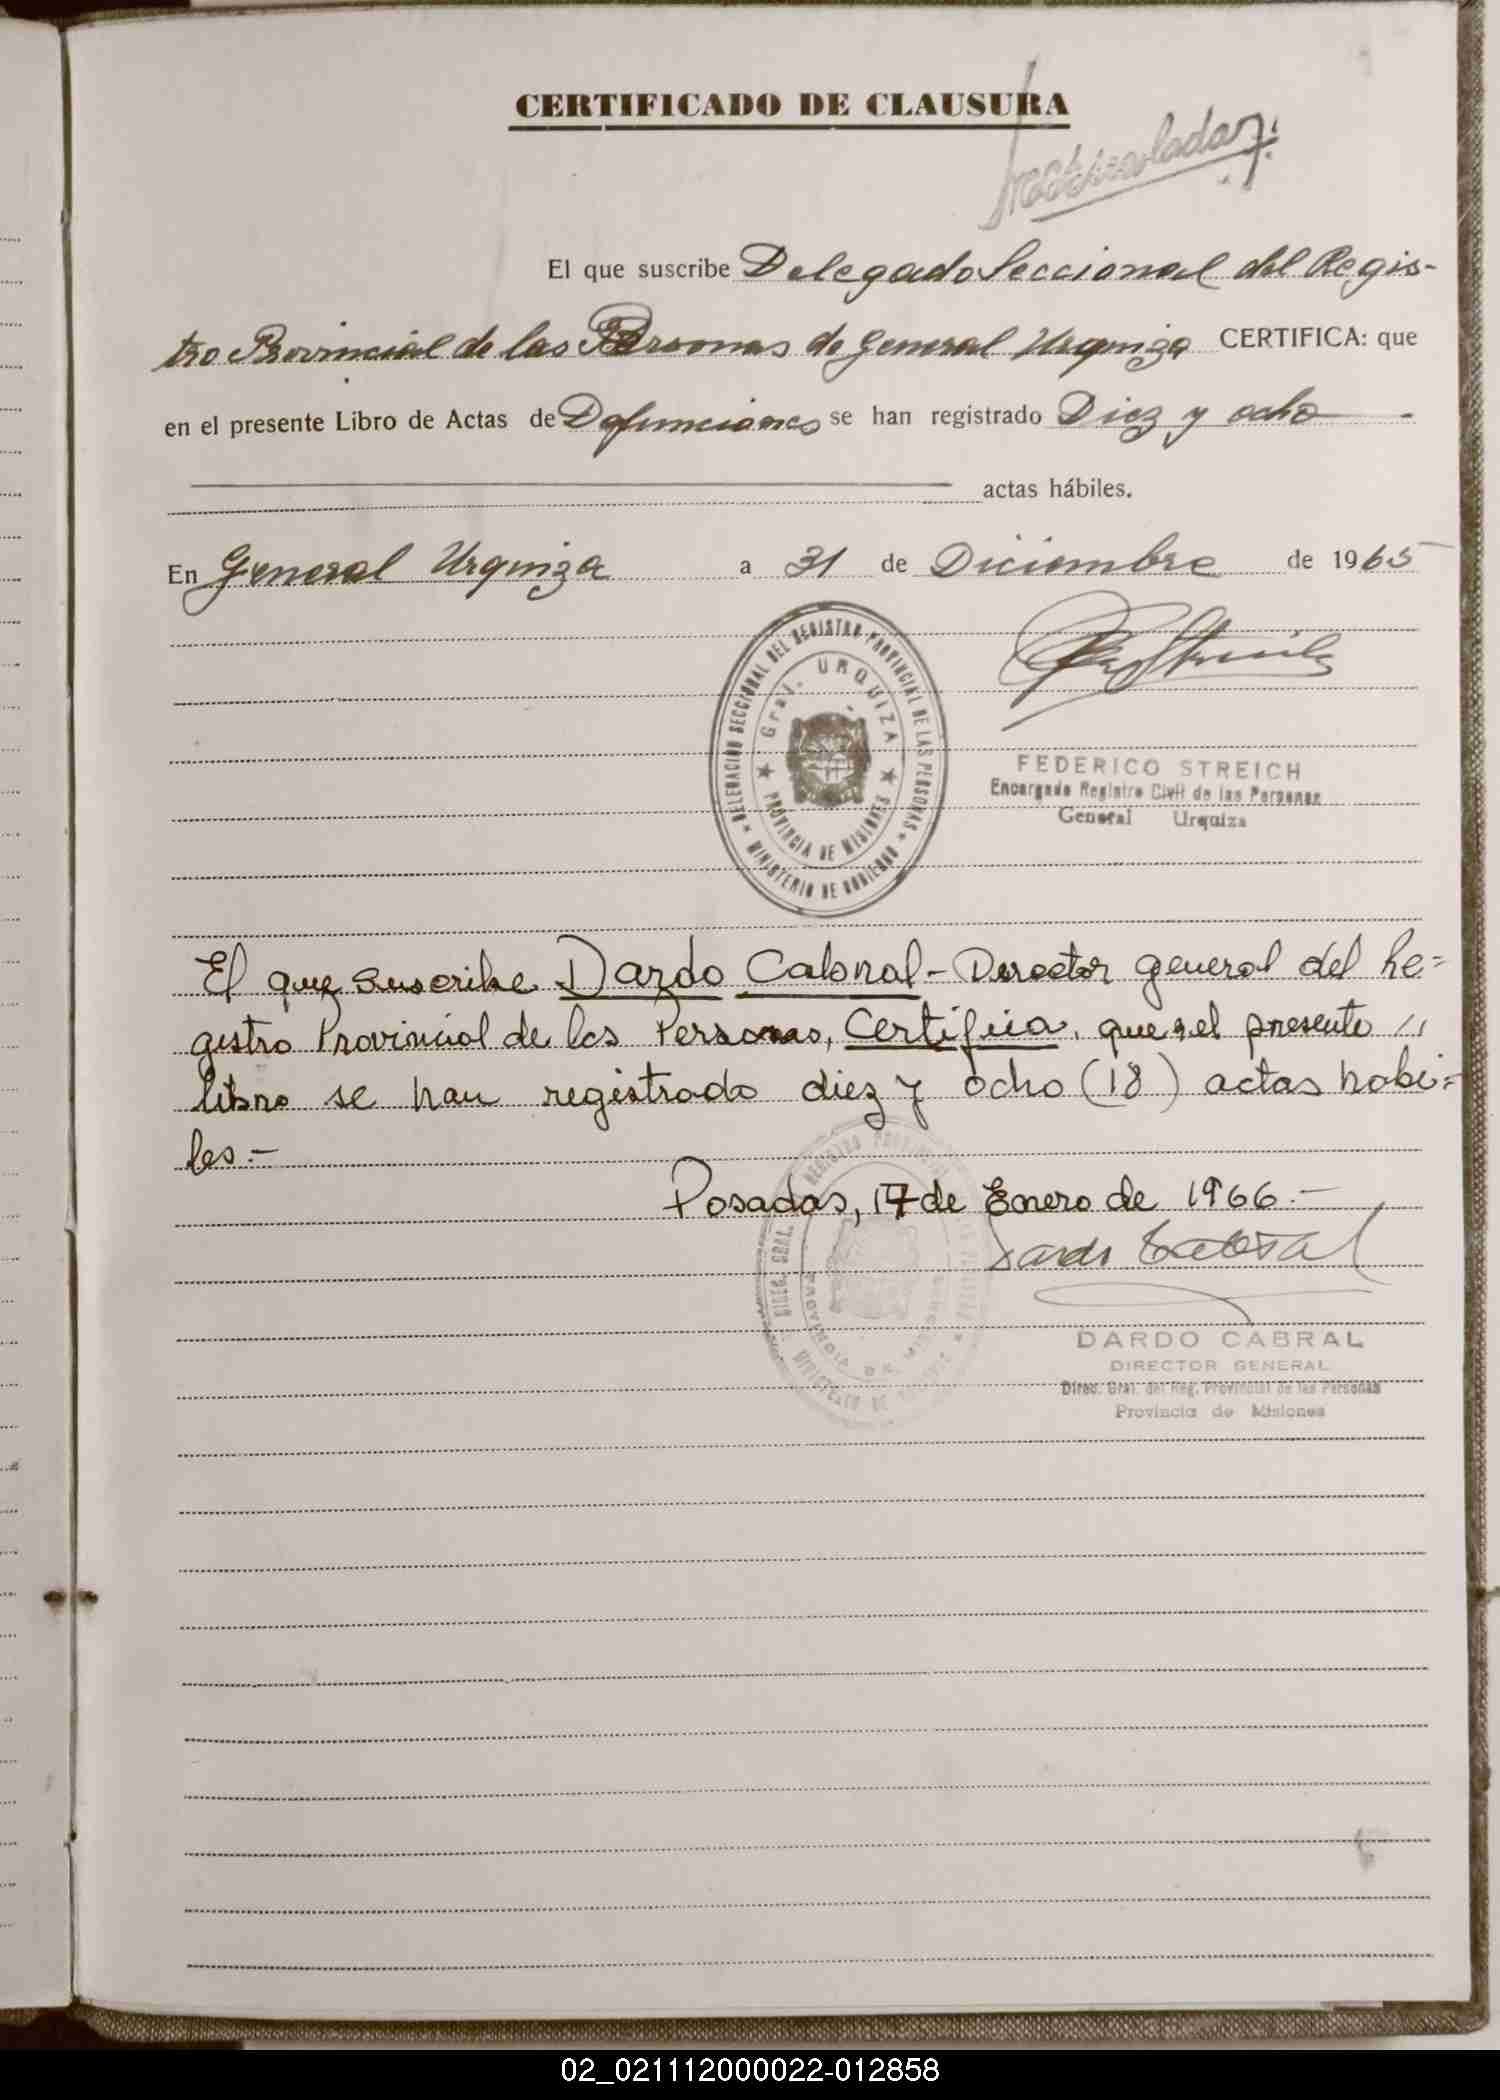 CERTIFICADO DE CLAUSURA
El que suscribe Delegado Seccional del Regis-
tro Provincial de las Personas de General Urquiza CERTIFICA: que
en el presente Libro de Actas de Defunciones se han registrado Diez y ocho -
actas hábiles.
En General Urquiza a 31 de Diciembre de 1965
DELEGACION SECCIONAL DEL REGISTRO PROVINCIAL DE LAS PERSONAS
★ MINISTERIO DE GOBIERNO ★
Gral. URQUIZA
★ PROVINCIA DE MISIONES ★
FEDERICO STREICH
Encargado Registro Civil de las Personas
General Urquiza
El que suscribe Dardo Cabral - Director general del Re=
gistro Provincial de las Personas, Certifica, que, el presente //
libro se han registrado diez y ocho (18) actas habi=
les.-
Posadas, 17 de Enero de 1966.-
Dardo Cabral
DARDO CABRAL
DIRECTOR GENERAL
Direc. Gral. del Reg. Provincial de las Personas
Provincia de Misiones
02_021112000022-012858